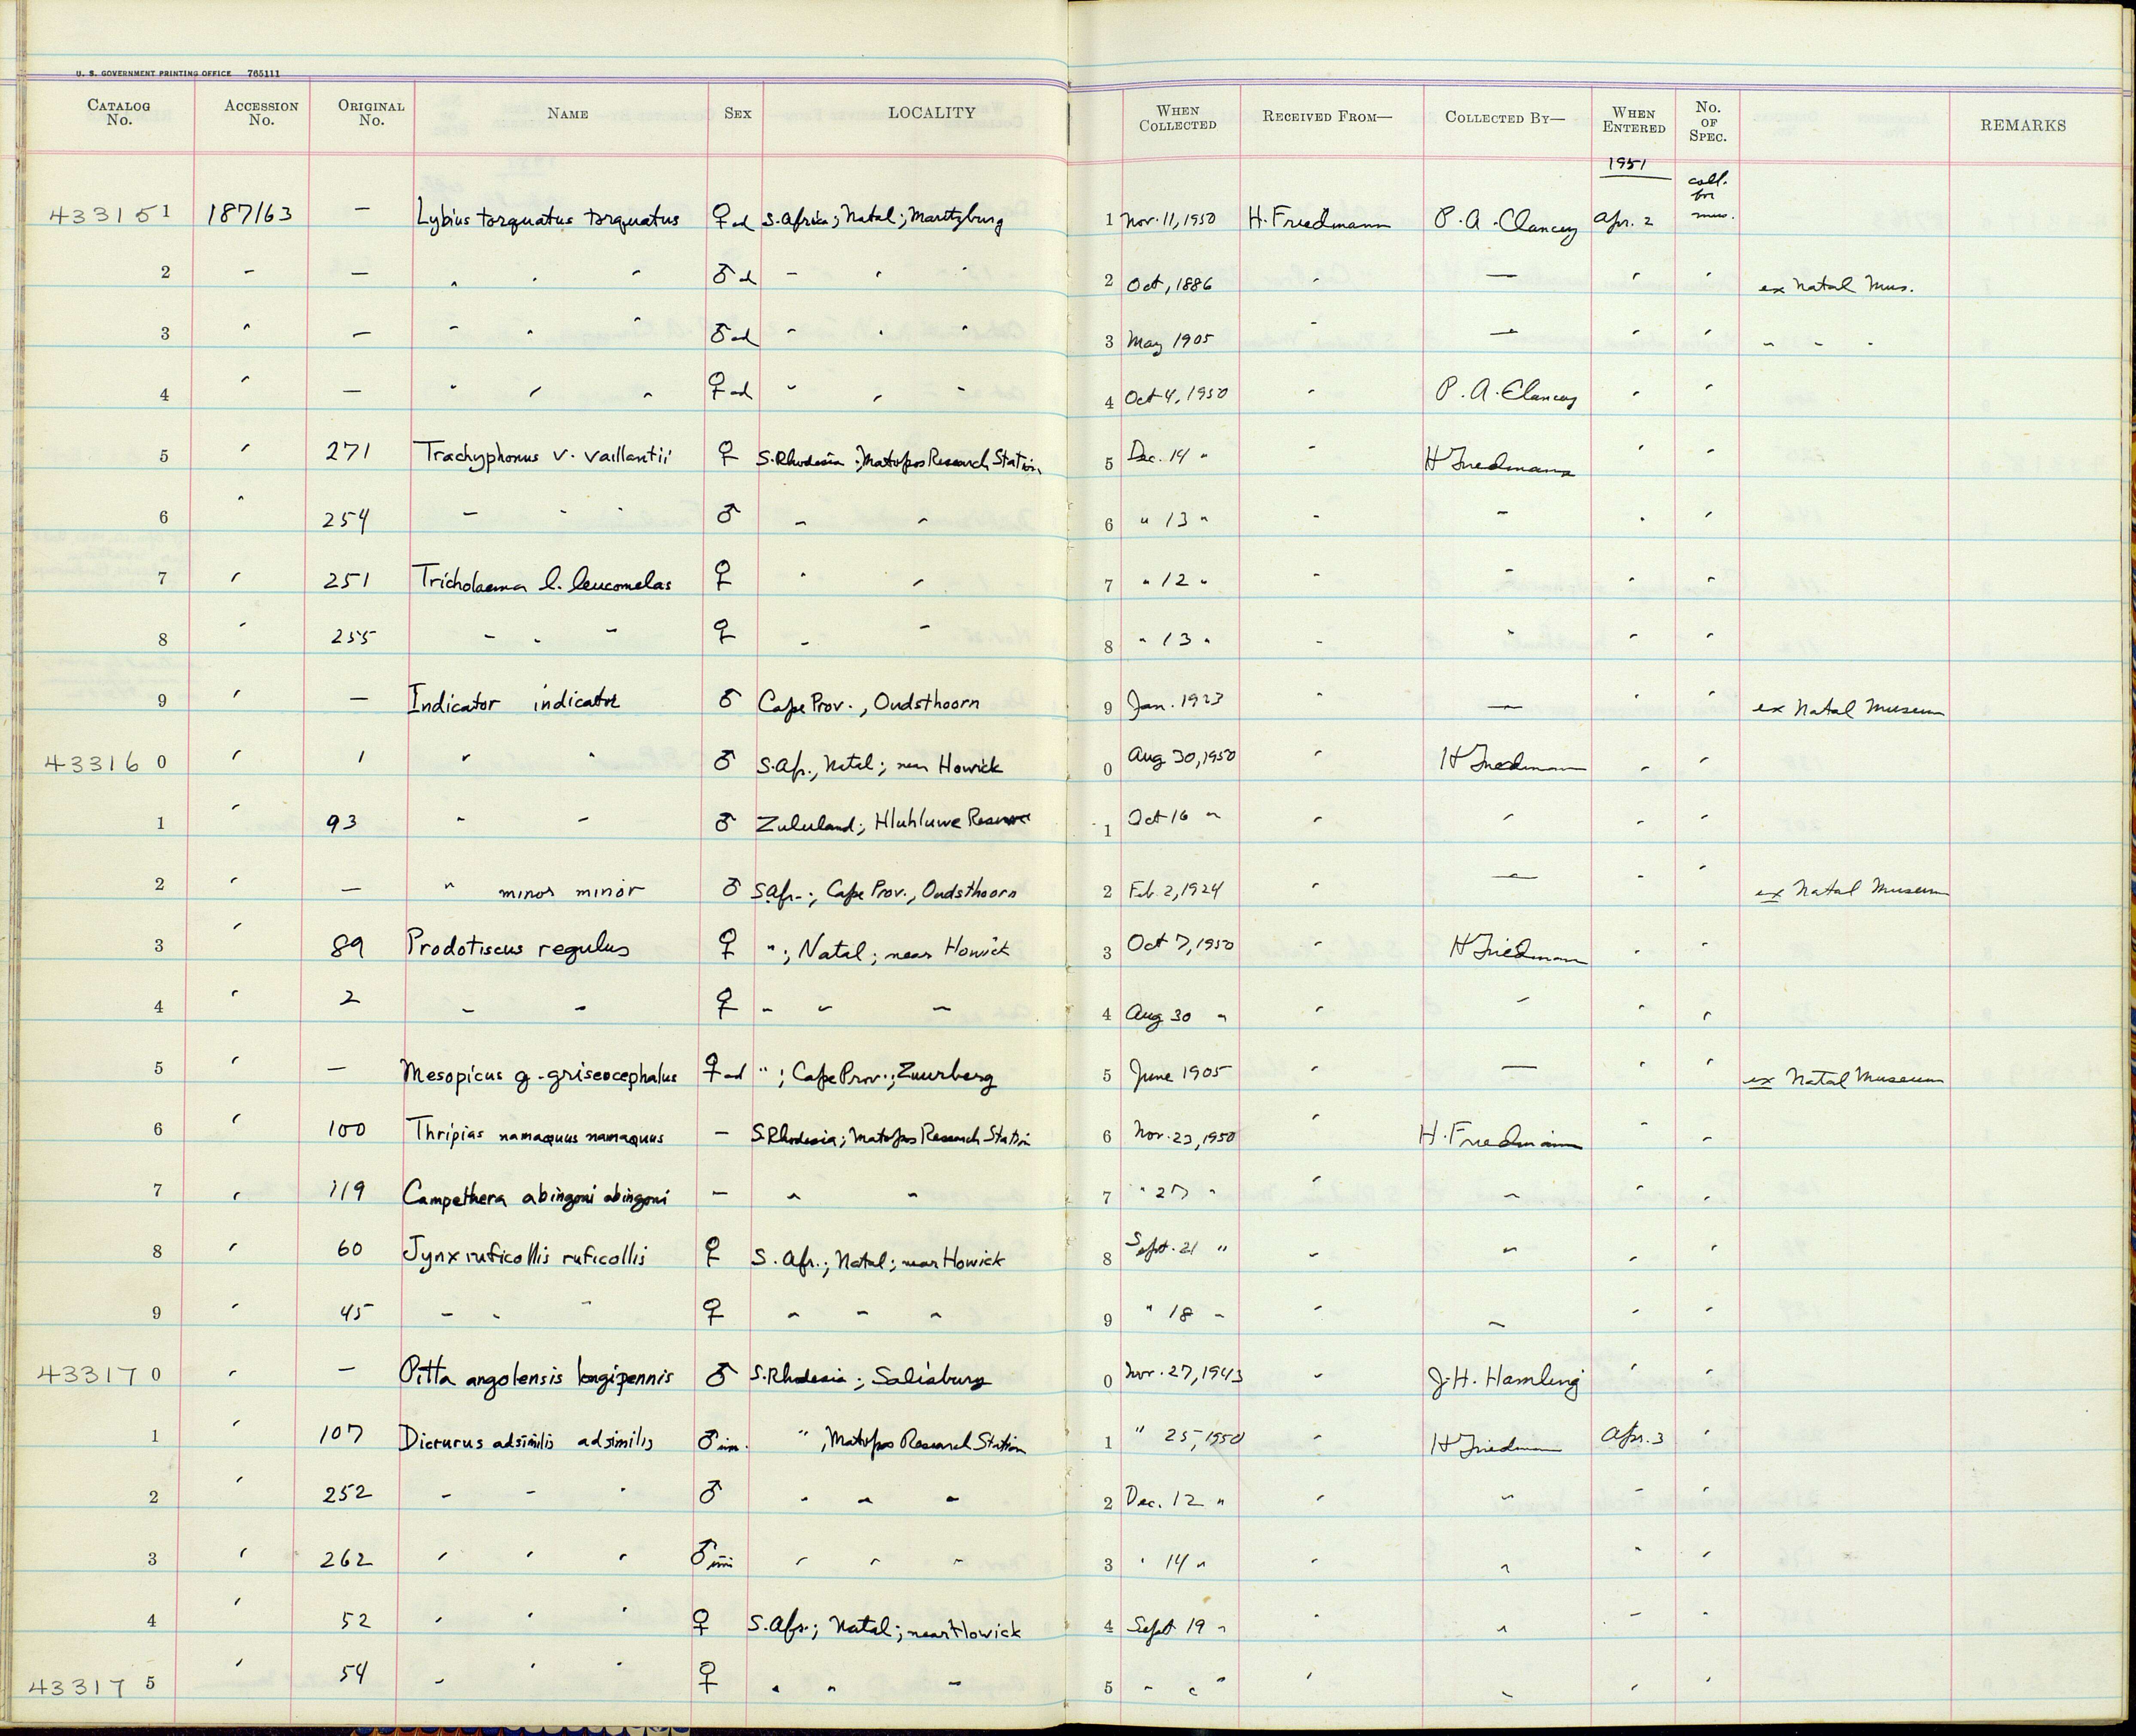 U. S. GOVERNMENT PRINTING OFFICE 765111
CATALOG No. ACCESSION No. ORIGINAL No. NAME SEX LOCALITY WHEN COLLECTED RECEIVED FROM— COLLECTED BY— WHEN ENTERED No. OF SPEC. REMARKS
1951
433151 187163 — Lybius torquatus torquatus ♀ad S. Africa; Natal; Maritzburg 1 Nov. 11, 1950 H. Friedmann P. A. Clancey Apr. 2 coll. for mus.
2 " — " " " ♂ad " " " 2 Oct, 1886 " — " " ex Natal Mus.
3 " — " " " ♂ad " " " 3 May 1905 " — " " " " "
4 " — " " " ♀ad " " " 4 Oct 4, 1950 " P. A. Clancey " "
5 " 271 Trachyphonus v. vaillantii ♀ S. Rhodesia; Matopos Research Station 5 Dec. 14 " " H Friedmann " "
6 " 254 " " " ♂ " " 6 " 13 " " " " "
7 " 251 Tricholaema l. leucomelas ♀ " " 7 " 12 " " " " "
8 " 255 " " " ♀ " " 8 " 13 " " " " "
9 " — Indicator indicator ♂ Cape Prov., Oudsthoorn 9 Jan. 1923 " — " " ex Natal Museum
433160 " 1 " " ♂ S. Afr., Natal; near Howick 0 Aug 30, 1950 " H Friedmann " "
1 " 93 " " ♂ Zululand; Hluhluwe Reserve 1 Oct 16 " " " " "
2 " — " minor minor ♂ S Afr.; Cape Prov., Oudsthoorn 2 Feb. 2, 1924 " — " " ex Natal Museum
3 " 89 Prodotiscus regulus ♀ "; Natal; near Howick 3 Oct 7, 1950 " H Friedmann " "
4 " 2 " " ♀ " " " 4 Aug 30 " " " " "
5 " — Mesopicus g. griseocephalus ♀ad "; Cape Prov.; Zuurberg 5 June 1905 " — " " ex Natal Museum
6 " 100 Thripias namaquus namaquus — S. Rhodesia; Matopos Research Station 6 Nov. 23, 1950 " H. Friedmann " "
7 " 119 Campethera abingoni abingoni — " " 7 " 27 " " " " "
8 " 60 Jynx ruficollis ruficollis ♀ S. Afr.; Natal; near Howick 8 Sept. 21 " " " " "
9 " 45 " " " ♀ " " " 9 " 18 " " " " "
433170 " — Pitta angolensis longipennis ♂ S. Rhodesia; Salisbury 0 Nov. 27, 1943 " J. H. Hamling " "
1 " 107 Dicrurus adsimilis adsimilis ♂ im. ", Matopos Research Station 1 " 25, 1950 " H Friedmann Apr. 3 "
2 " 252 " " " ♂ " " " 2 Dec. 12 " " " " "
3 " 262 " " " ♂ im " " " 3 " 14 " " " " "
4 " 52 " " " ♀ S. Afr.; Natal; near Howick 4 Sept 19 " " " " "
433175 " 54 " " " ♀ " " " 5 " " " " " " "